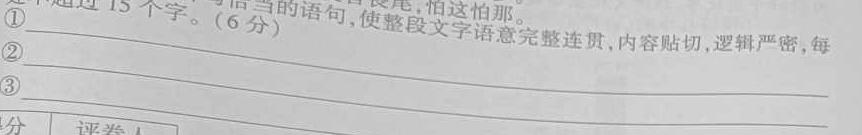 畏尾,怕这怕那。
恰当的语句,使整段文字语意完整连贯,内容贴切,逻辑严密,每
超过15个字。(6分)
①
②
③
分 评卷人